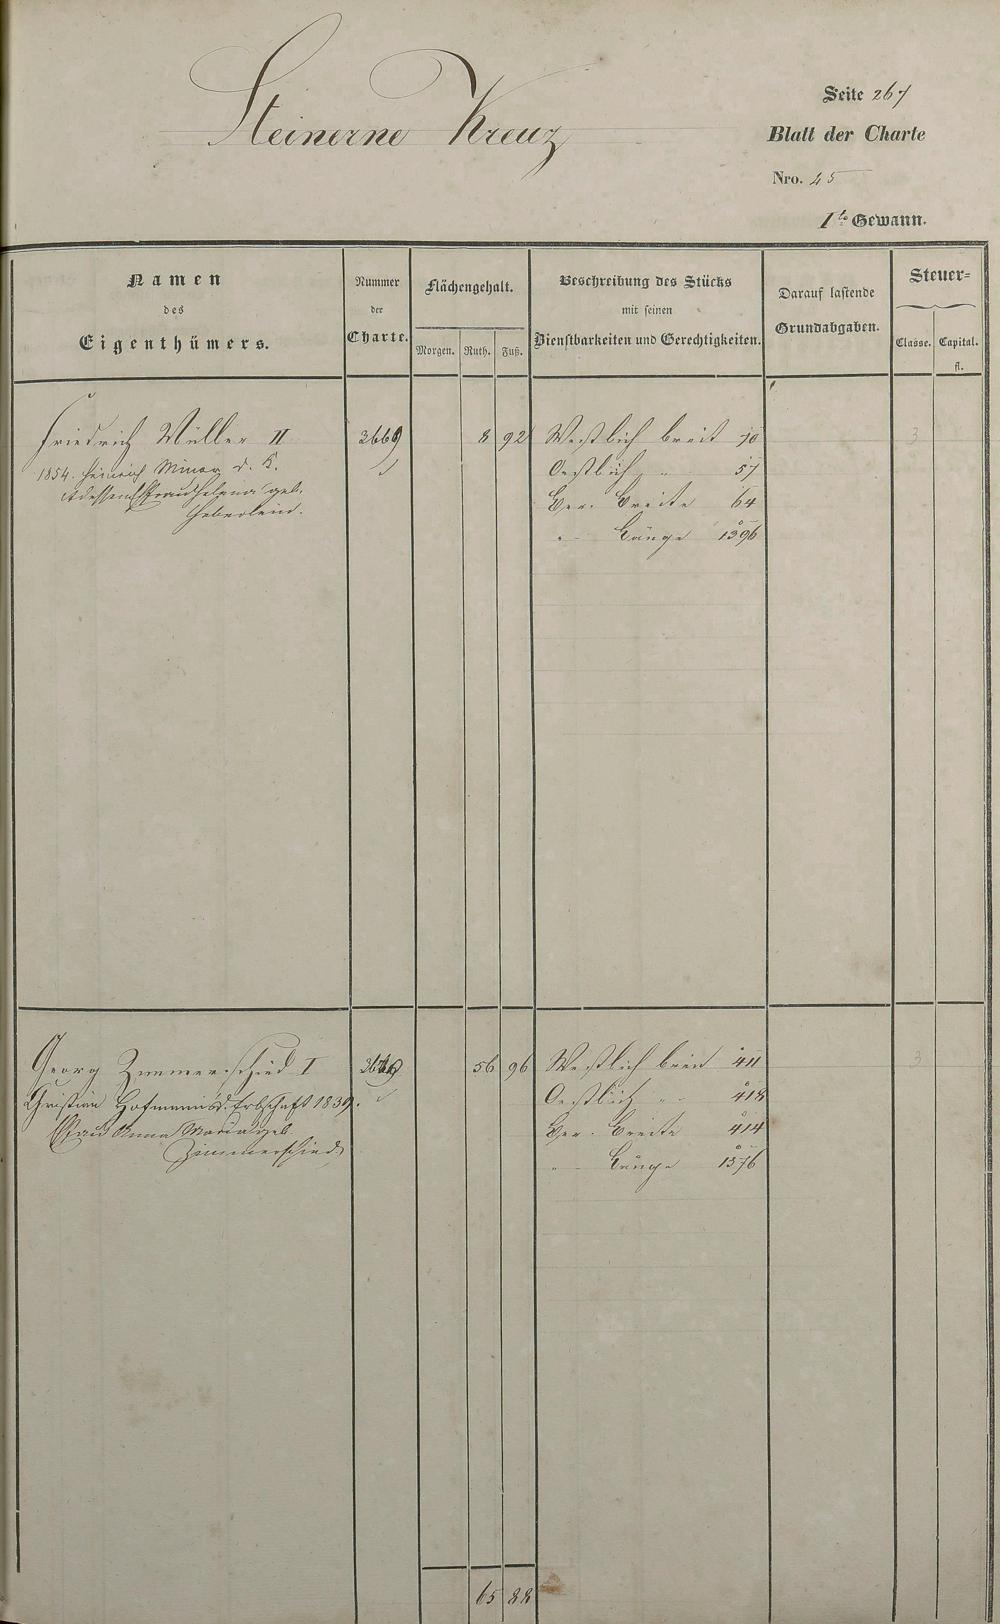 Steinerne Kreuz
Seite 267
Blatt der Charte
Nro. 45
1te Gewann.
Namen
des
Eigenthümers.
Nummer
der
Charte.
Flächengehalt.
Morgen. Ruth. Fuß.
Beschreibung des Stücks
mit seinen
Dienstbarkeiten und Gerechtigkeiten.
Darauf lastende
Grundabgaben.
Steuer-
Classe. Capital.
fl.
Friedrich Müller II 3669 8 92 Westlich breit 70 3
1854. Heinrich Minor d. K. Oestlich " 57
Frau Helena geb. Ver. Breite 64
Heberlein. " Länge 1396
Georg Zimmerschied I 56 96 Westlich breit 411 3
Christian Hofmann's d. Erbschaft 1839. Oestlich " 418
Frau Anna Maria geb. Ver. Breite 414
Zimmerschied " Länge 1376
65 88